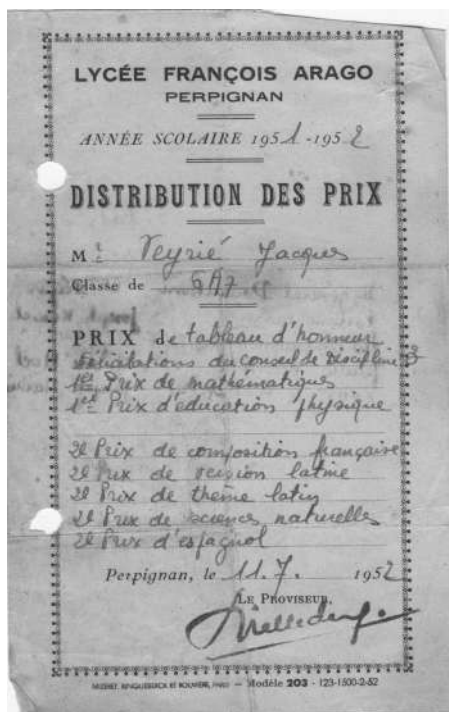 LYCÉE FRANÇOIS ARAGO
PERPIGNAN
ANNÉE SCOLAIRE 1951-1952
DISTRIBUTION DES PRIX
Mr Veyrié Jacques
Classe de 6A7
PRIX de tableau d'honneur
Félicitations du conseil de Discipline
1er Prix de mathématiques
1er Prix d'éducation physique
2e Prix de composition française
2e Prix de version latine
2e Prix de thème latin
2e Prix de sciences naturelles
2e Prix d'espagnol
Perpignan, le 11.7. 1952
LE PROVISEUR,
Modèle 203 - 123-1500-2-52